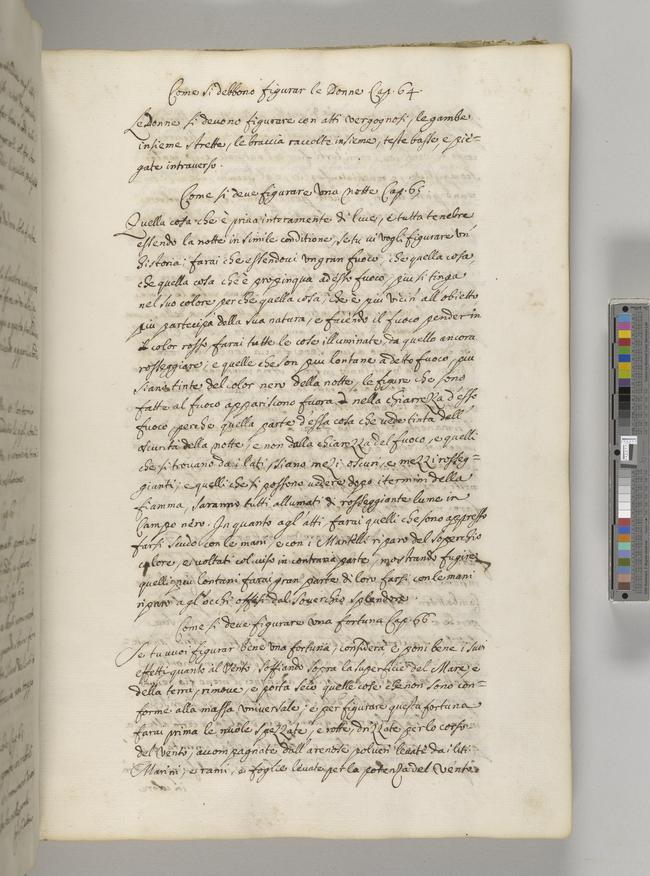 Come si debbono figurar le Donne Cap. 64.
Le Donne si devono figurare con atti vergognosi, le gambe
insieme strette, le braccia raccolte insieme, teste basse e pie=
gate intraverso.
Come si deve figurare una notte Cap. 65
Quella cosa che è priva interamente di luce, è tutta tenebre
essendo la notte in simile conditione, se tu vi vogli figurare un'
historia; farai che essendovi un gran fuoco, che quella cosa
che quella cosa che è propinqua ad esso fuoco più si tinga
nel suo colore perche quella cosa, che è più vicin all'obietto
più partecipa della sua natura, e facendo il fuoco pender in
color rosso farai tutte le cose illuminate da quello ancora
rosseggiare; e quelle che son più lontane a detto fuoco, più
siano tinte del color nero della notte, le figure che sono
fatte al fuoco apparisiono nella chiarezza d'esso
fuoco, perche quella parte d'essa cosa che vede tinta dell'
oscurità della notte, e non dalla chiarezza del fuoco, e quelli
che si trovano da i lati, siano mezi oscuri, e mezzi rosseg=
gianti; e quelli che si possono vedere dopo i termini della
fiamma, saranno tutti allumati di rosseggiante lume in
Campo nero. In quanto agl'atti farai quelli che sono appresso
farsi scudo con le mani e con i Mantelli riparo del soperchio
calore, e voltati col viso in contraria parte, mostrando fugire
quelli più lontani farai gran parte di loro farsi con le mani
riparo agl'occhi offesi dal soverchio splendore.
Come si deve figurare una fortuna Cap. 66
Se tu vuoi figurar bene una fortuna, considera e poni bene i suoi
effetti quanto al Vento, soffiando sopra la superficie del Mare, e
della terra, rimove, e porta seco quelle cose che non sono con=
forme alla massa universale; e per figurare questa fortuna
farai prima le nuvole spezzate, e rotte, drizzate per lo corso
del Vento, accompagnate dall'arenose polveri levate da i liti
Marini; e rami, e foglie levate per la potenza del Vento